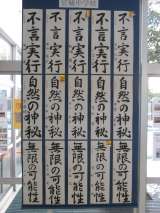 不言実行 不言実行 不言実行 不言実行 不言実行
自然の神秘 自然の神秘 自然の神秘 自然の神秘 自然の神秘
無限の可能性 無限の可能性 無限の可能性 無限の可能性 無限の可能性